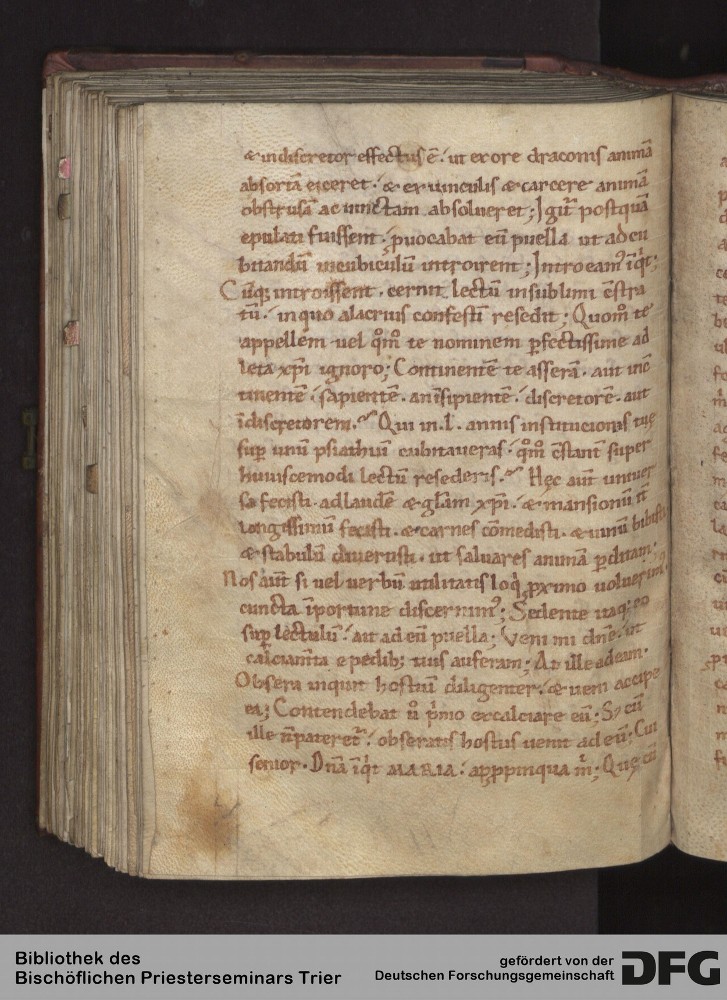 & indiscretor effectus ē. ut ex ore draconis animā
absortā eiceret. & ex uinculis & carcere animā
obstrusā ac uinctam absolueret; Igit᷑ postquā
epulati fuissent. ꝓuocabat eū puella ut ad cu
bitandū in cubiculū introirent; Introeamꝰ īq̇t;
Cūq; introissent. cernit lectū in sublimi cͦstra
tū. in quo alacrius confestī resedit; Quom̊ te
appellem uel q̊m̊ te nominem ꝑfectissime ad
leta xp̄i ignoro; Continentē te asserā. an inc̄
tinentē. sapientē. an īsipientē. discretorē. aut
īdiscretorem. Qui in .l. annis institucionis tuę
suꝑ unū psiathiū cubitaueras. q̊m̊ cͦstant super
huiuscemodi lectū resederis. Hęc aūt uniuer
sa fecisti. ad laudē & glām xp̄i. & mansionū it̄
longissimū fecisti. & carnes cōmedisti. & uinū bibisti
& stabulū diuertisti. ut saluares animā ꝑditam;
Nos aūt si uel uerbū utilitatis loq̇ ꝓximo uoluerimꝰ
cuncta īportune discernimꝰ; Sedente itaq; eo
suꝑ lectulū. ait ad eū puella; Veni mi dn̄e. ut
calciam̄ta e pedib; tuis auferam; At ille ad eam.
Obsera inquit hostiū diligenter. & ueni accipe
ea; Contendebat ů pͥmo excalciare eū; S; cū
ille n̄ pateret᷑. obseratis hostiis uenit ad eū; Cui
senior. Dn̄a īq̇t MARIA. apꝓpinqua m̊; Quę cū
Bibliothek des
Bischöflichen Priesterseminars Trier
gefördert von der
Deutschen Forschungsgemeinschaft
DFG